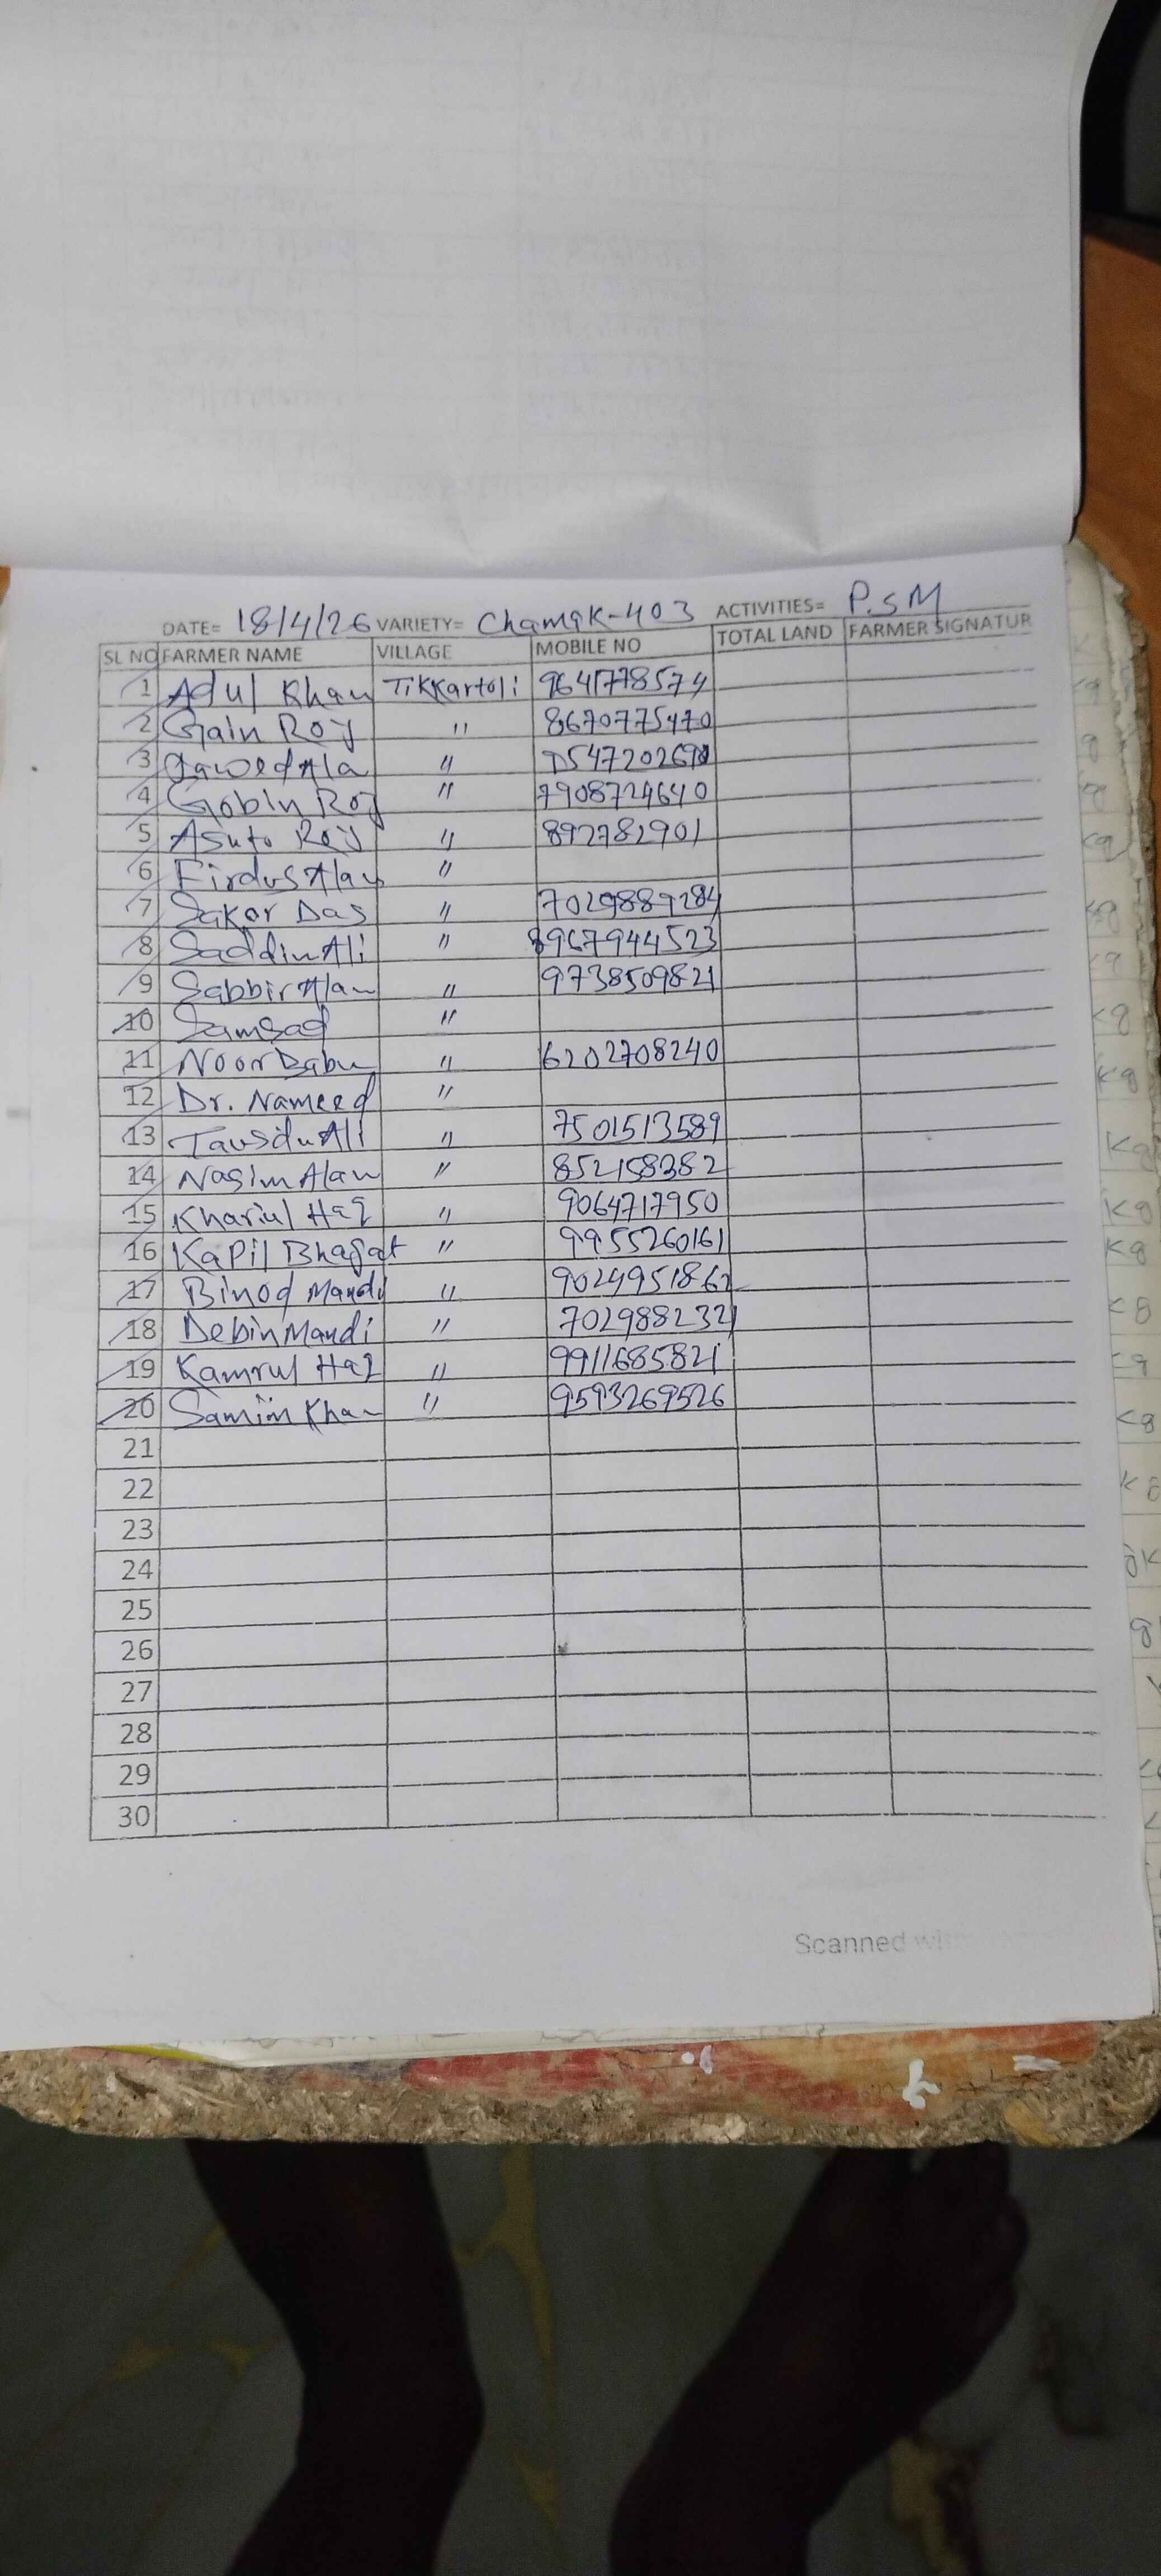 DATE= 18/4/26 VARIETY= Chamak-403 ACTIVITIES= P.S M
SL NO FARMER NAME VILLAGE MOBILE NO TOTAL LAND FARMER SIGNATUR
1 Adul Khan Tikkartoli 9641778574
2 Gain Roy " 8670775470
3 "
4 Gobin Roy " 7908724640
5 Asuto Roy " 892782901
6 Firdus Alam "
7 Sakor Das " 7029889284
8 Saddin Ali " 8967944523
9 Sabbir Alam " 9738509821
10 Samsad "
11 Noor Babu " 6202708240
12 Dr. Nameed "
13 Tausidu Ali " 7501513589
14 Nasim Alam " 852158382
15 Khariul Haq " 9064717950
16 Kapil Bhagat " 9955260161
17 Binod Mandi " 9024951862
18 Debin Mandi " 7029882321
19 Kamrul Haq " 9911685821
20 Samim Khan " 9593269526
21
22
23
24
25
26
27
28
29
30
Scanned with